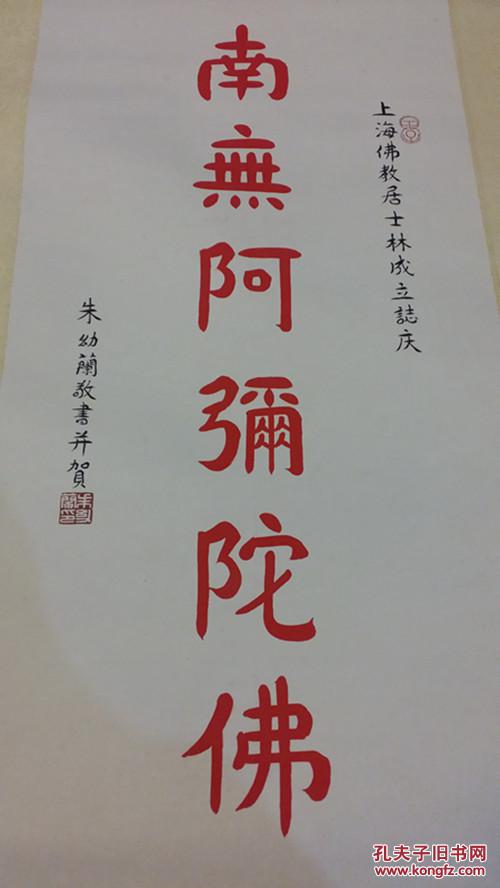 上海佛教居士林成立誌庆
南無阿彌陀佛
朱幼蘭敬書并賀
孔夫子旧书网
www.kongfz.com